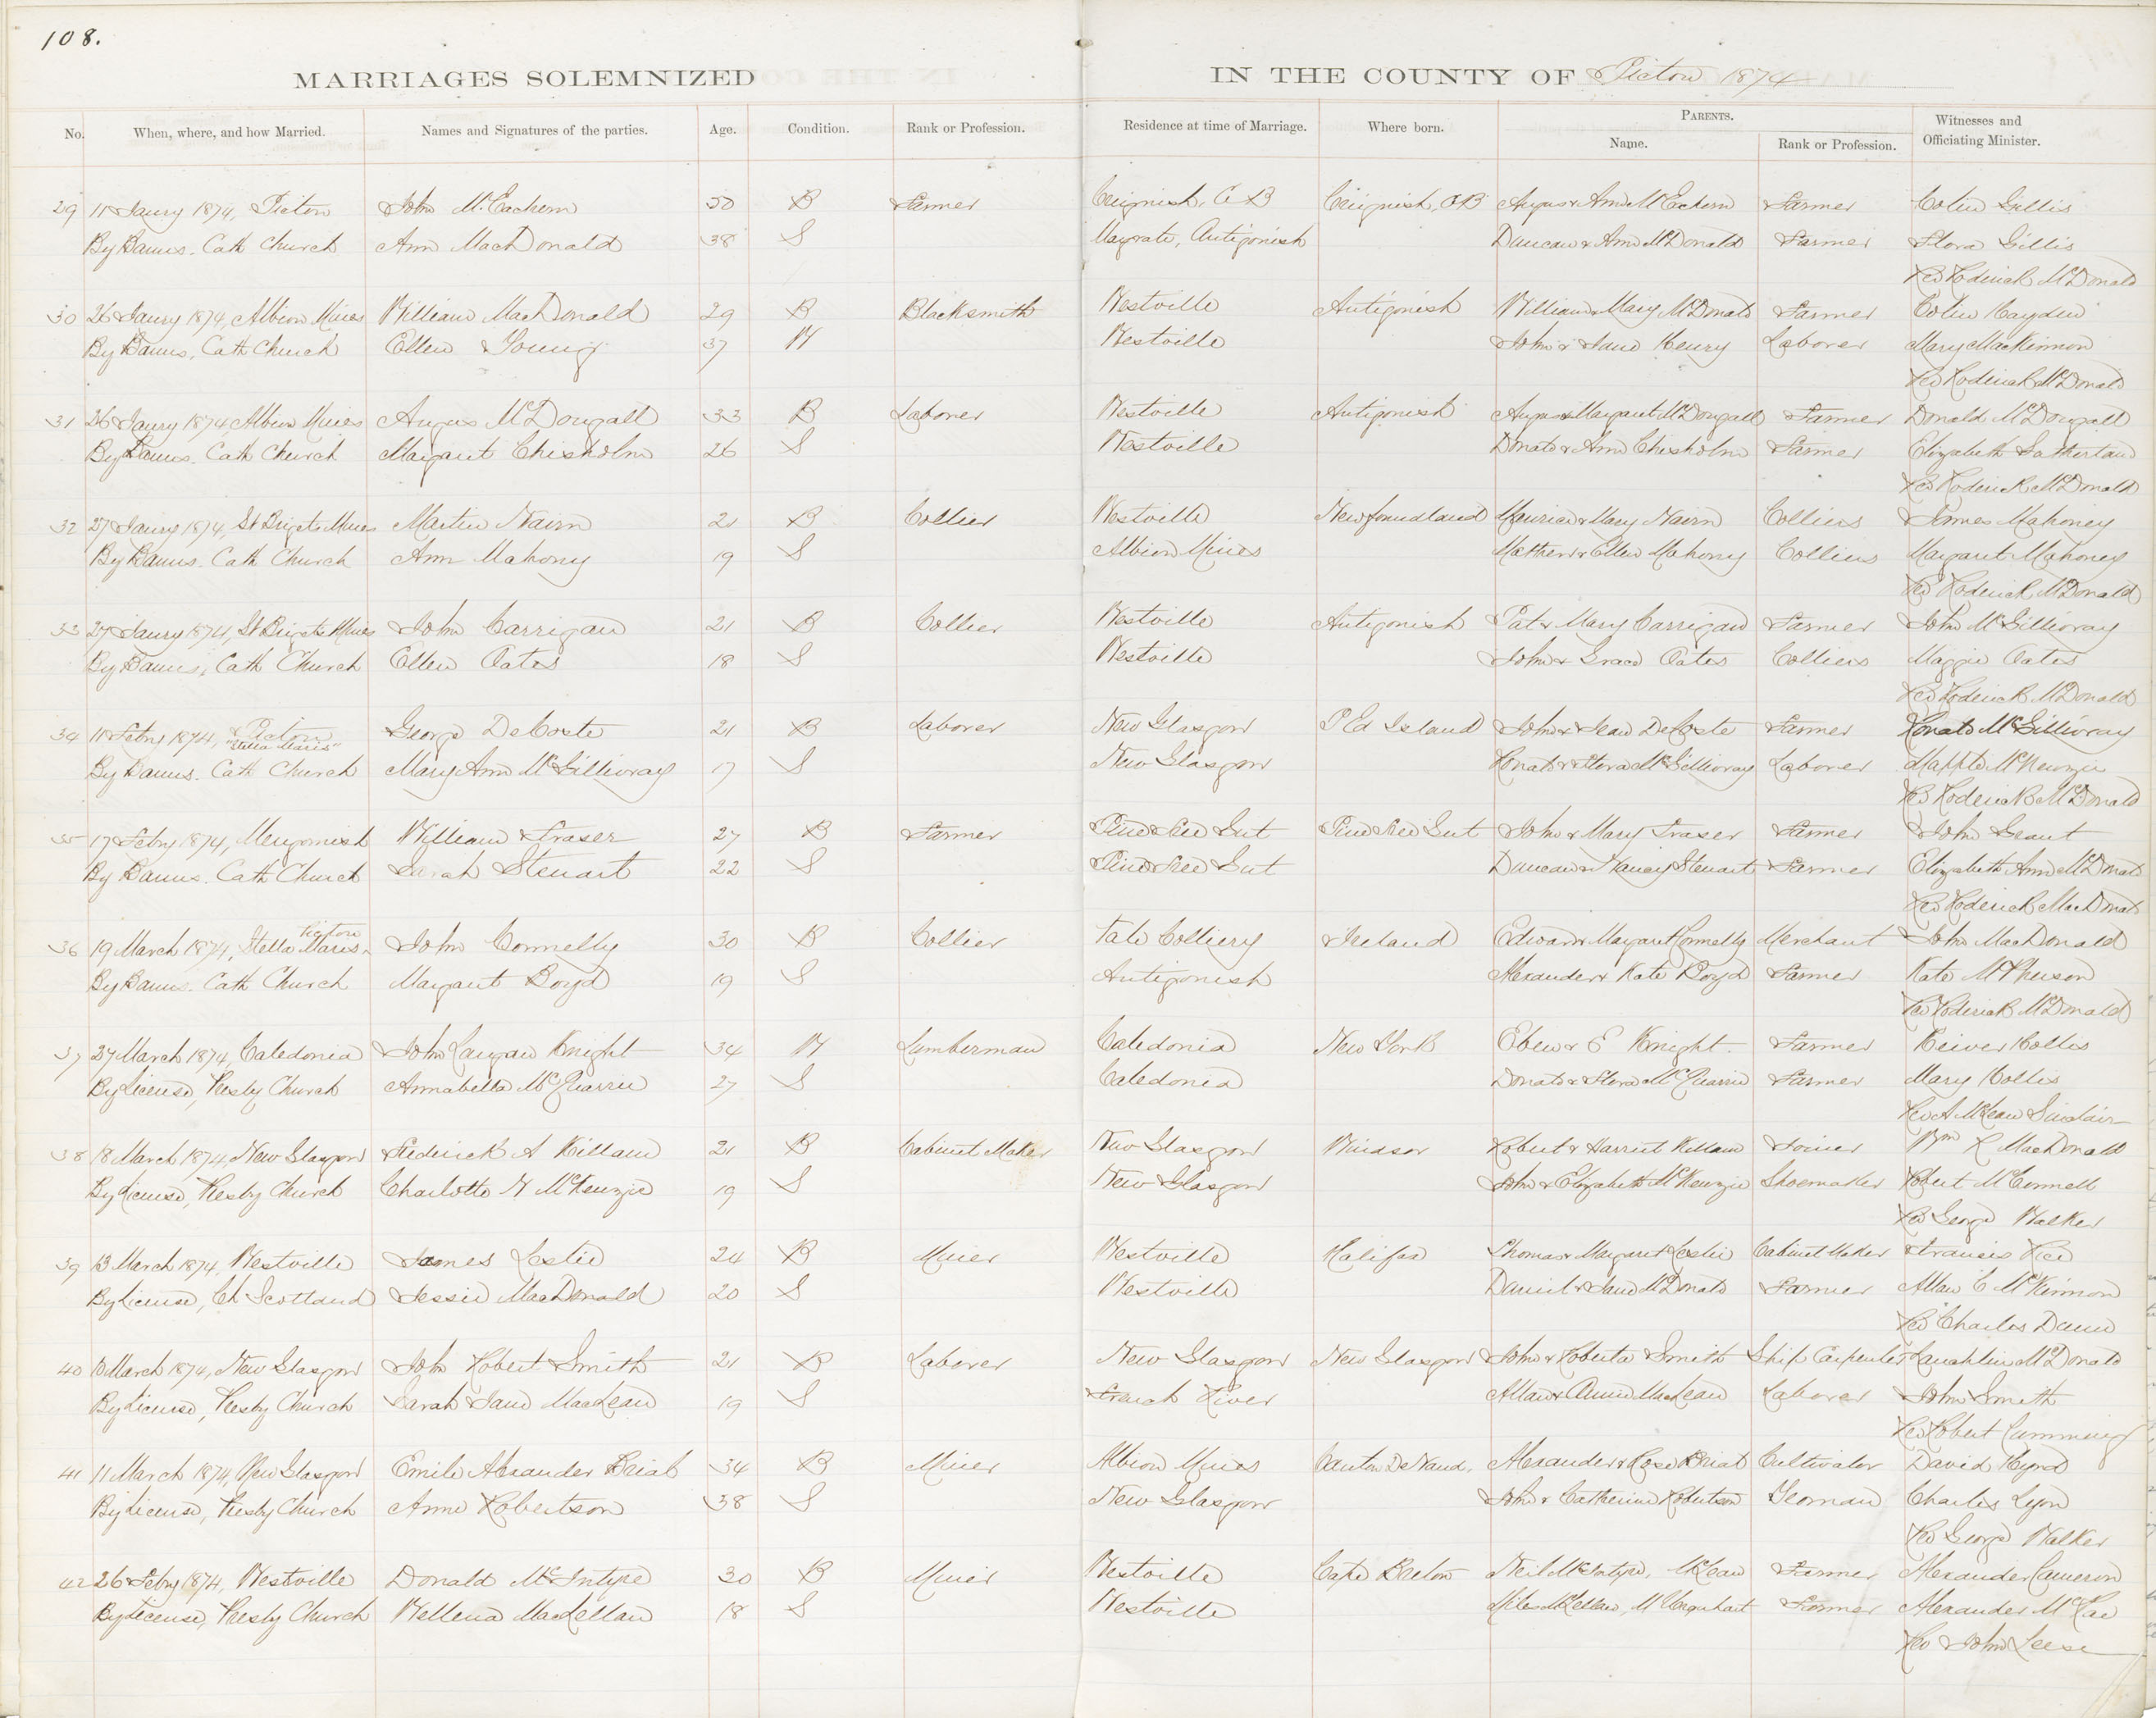 108.
MARRIAGES SOLEMNIZED IN THE COUNTY OF Pictou 1874
No. When, where, and how Married. Names and Signatures of the parties. Age. Condition. Rank or Profession. Residence at time of Marriage. Where born. PARENTS. Name. Rank or Profession. Witnesses and Officiating Minister.
29 11 Jaury 1874, Pictou John McEachern 50 B Farmer Creignish, C B Creignish, C B Angus & Ann McEchern Farmer Colin Gillis
By Banns. Cath Church Ann MacDonald 38 S Antigonish Duncan & Ann McDonald Farmer Flora Gillis
Rev Roderick McDonald
30 26 Jaury 1874, Albion Mines William MacDonald 29 B Blacksmith Westville Antigonish William & Mary McDonald Farmer Colin Hayden
By Banns, Cath Church Ellen Young 37 W Westville John & Jane Henry Laborer Mary MacKinnon
Rev Roderick McDonald
31 26 Jaury 1874 Albion Mines Angus McDougall 33 B Laborer Westville Antigonish Angus & Margaret McDougall Farmer Donald McDougall
By Banns. Cath Church Margaret Chisholm 26 S Westville Donald & Ann Chisholm Farmer Elizabeth Sutherland
Rev Roderick McDonald
32 27 Jaury 1874, St Brigets Mines Martin Nairn 21 B Collier Westville Newfoundland Maurice & Mary Nairn Colliers James Mahoney
By Banns. Cath Church Ann Mahony 19 S Albion Mines Mathew & Ellen Mahony Colliers Margaret Mahoney
Rev Roderick McDonald
33 27 Jaury 1874, St Brigets Mines John Carrigan 21 B Collier Westville Antigonish Pat & Mary Carrigan Farmer John McGillivray
By Banns, Cath Church Ellen Oates 18 S Westville John & Grace Oates Colliers Maggie Oates
Rev Roderick McDonald
34 11 Febry 1874, Pictou "Stella Maris" George DeCoste 21 B Laborer New Glasgow P Ed Island John & Jean DeCoste Farmer Ronald McGillivray
By Banns. Cath Church Mary Ann McGillivray 17 S New Glasgow Ronald & Flora McGillivray Laborer McKenzie
Rev Roderick McDonald
35 17 Febry 1874, Merigomish William Fraser 27 B Farmer Pine Tree Gut Pine Tree Gut John & Mary Fraser Farmer John Grant
By Banns. Cath Church Sarah Steuart 22 S Pine Tree Gut Duncan & Nancy Steuart Farmer Elizabeth Ann McDonald
Rev Roderick MacDonald
36 19 March 1874, Stella Maris Pictou John Connelly 30 B Collier Vale Colliery Ireland Edward & Margaret Connelly Merchant John MacDonald
By Banns. Cath Church Margaret Boyd 19 S Antigonish Alexander & Kate Boyd Farmer Kate McPherson
Rev Roderick McDonald
37 27 March 1874, Caledonia John Langan Knight 34 W Lumberman Caledonia New York Eben & E Knight. Farmer Hollis
By License, Presby Church Annabella McQuarrie 27 S Caledonia Donald & Flora McQuarrie Farmer Mary Hollis
Rev A McLean Sinclair
38 18 March 1874 New Glasgow Frederick A Killam 21 B Cabinet Maker New Glasgow Windsor Robert & Harriet Killam Joiner Wm R MacDonald
By License, Presby Church Charlotte N McKenzie 19 S New Glasgow John & Elizabeth McKenzie Shoemaker Robert McConnell
Rev George Walker
39 13 March 1874. Westville James Leslie 24 B Miner Westville Halifax Thomas & Margaret Leslie Cabinet Maker Francis Ree
By License, Ch Scotland Jessie MacDonald 20 S Westville Daniel & Jane McDonald Farmer Allan C McKinnon
Rev Charles Dunn
40 10 March 1874, New Glasgow John Robert Smith 21 B Laborer New Glasgow New Glasgow John & Roberta Smith Ship Carpenter Lauchlin McDonald
By License, Presby Church Sarah Jane MacLean 19 S French River Allan & Annie MacLean Laborer John Smith
Rev Robert Cumming
41 11 March 1874, New Glasgow Emile Alexander Briat 34 B Miner Albion Mines Canton De Vaud. Alexander & Rose Briat Cultivator David Hynd
By License, Presby Church Anne Robertson 38 S New Glasgow John & Catherine Robertson Yeoman Charles Lyon
Rev George Walker
42 26 Febry 1874, Westville Donald McIntyre 30 B Miner Westville Cape Breton Neil McIntyre, McLean Farmer Alexander Cameron
By License, Presby Church Wellena MacLellan 18 S Westville Miles McLellan, M Urquhart Farmer Alexander McRae
Rev John Leese